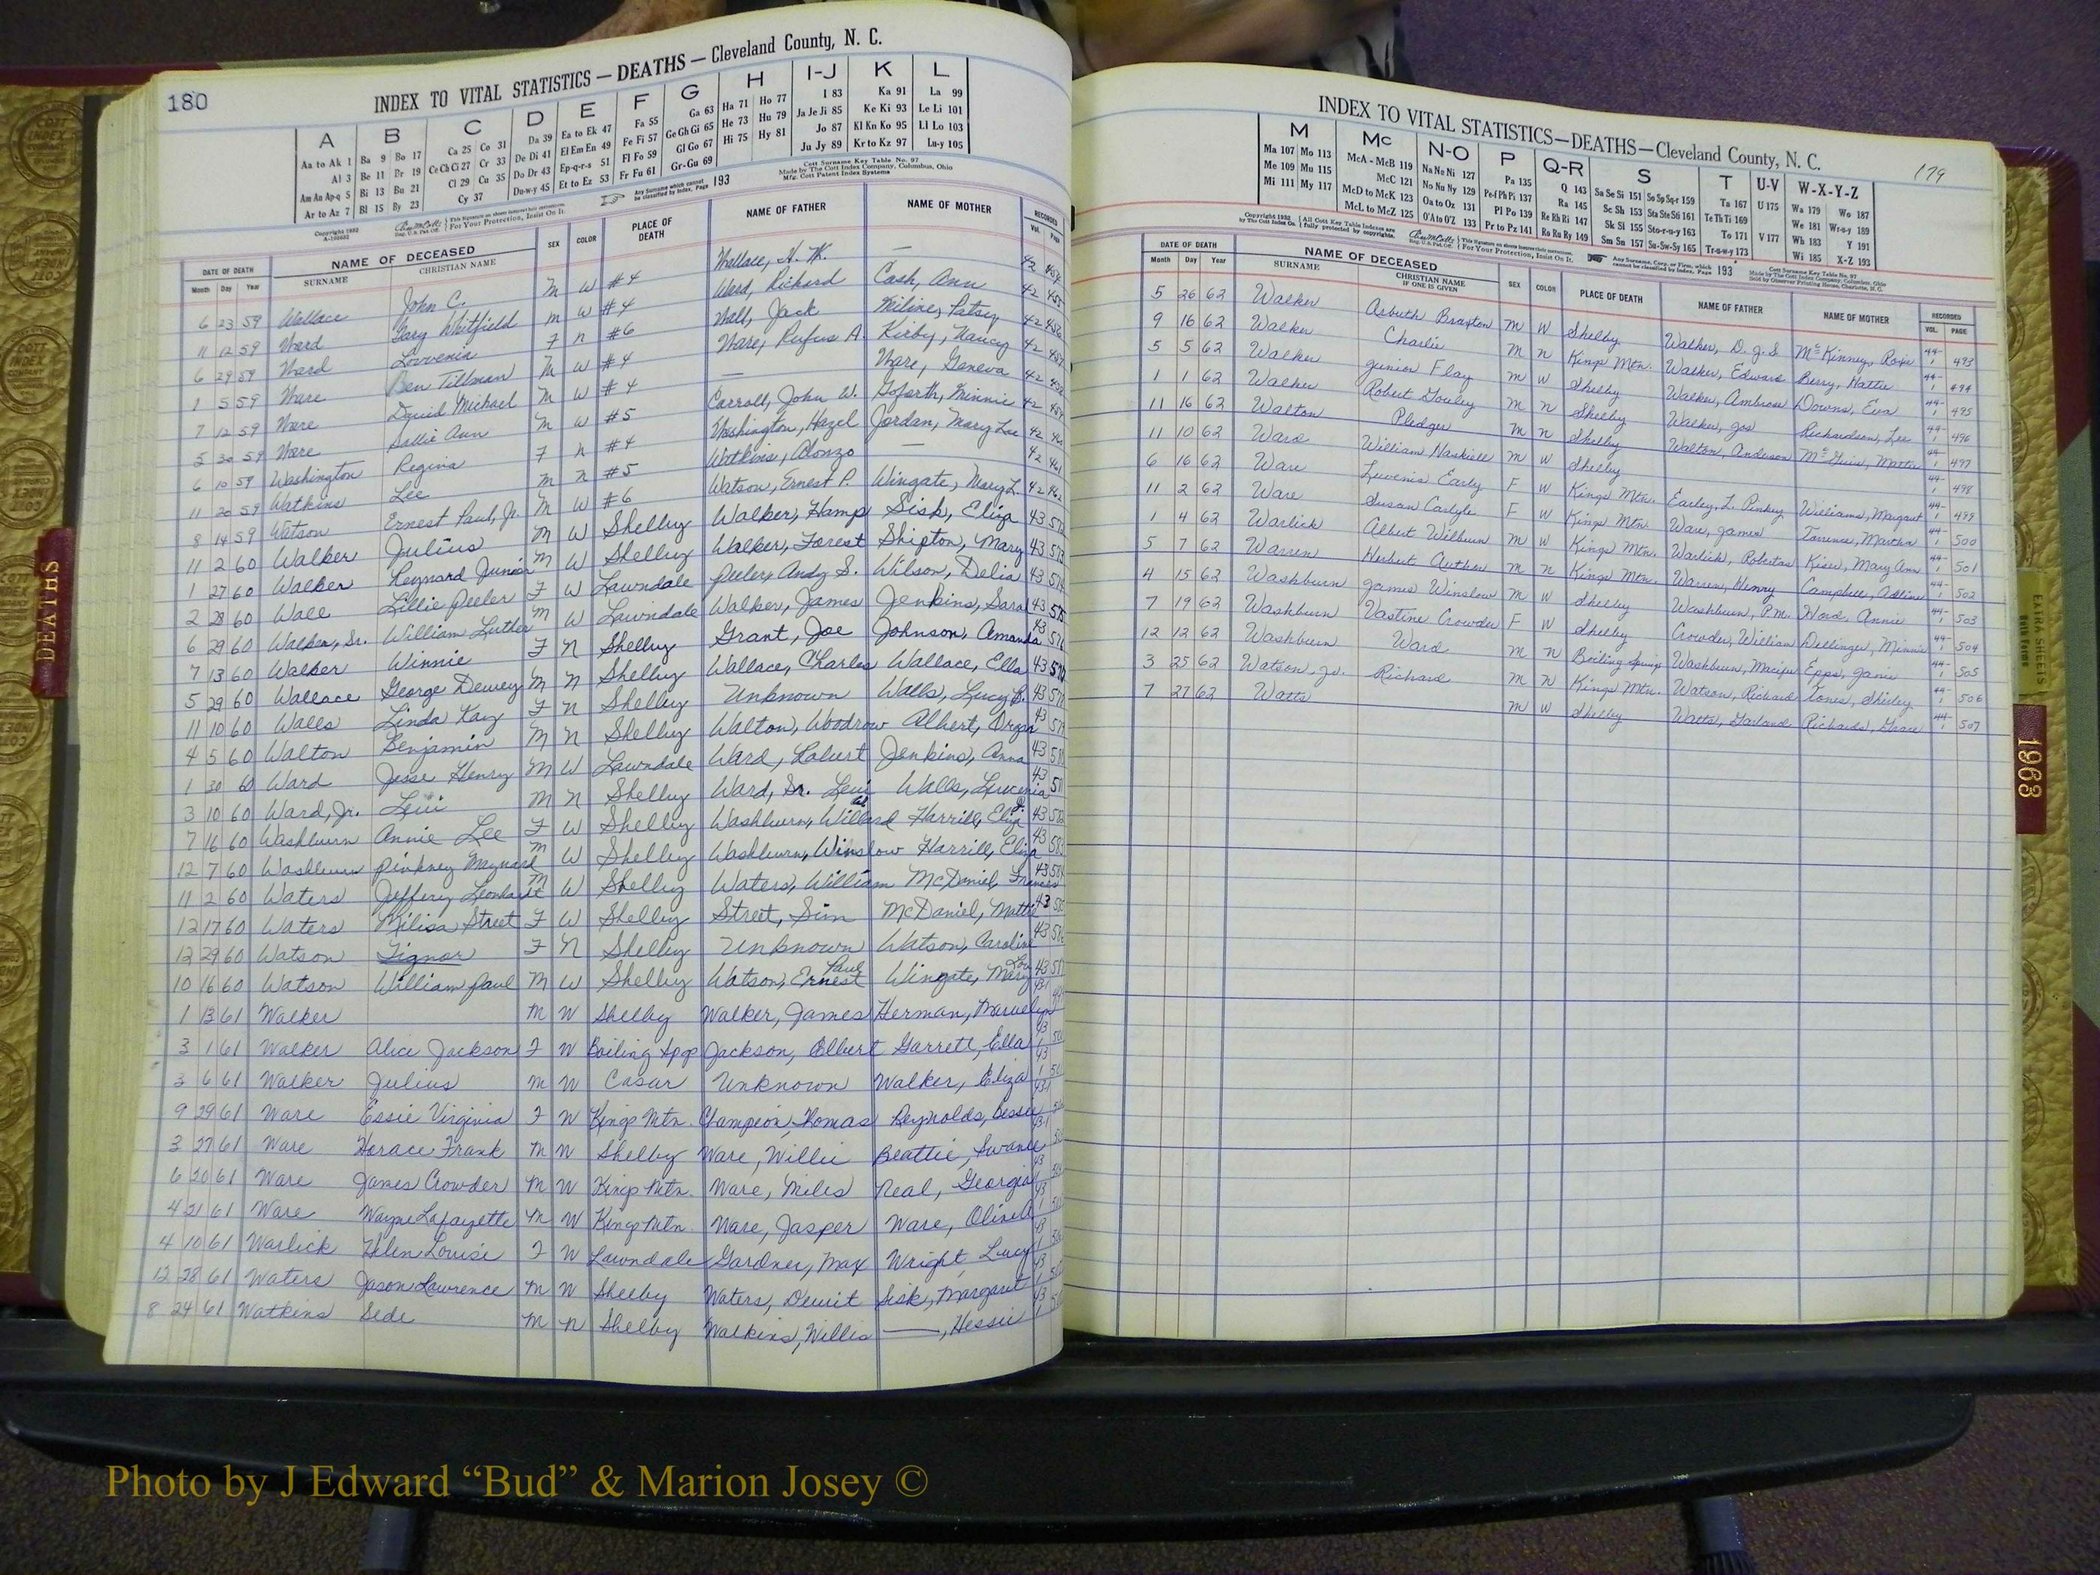 180
INDEX TO VITAL STATISTICS — DEATHS — Cleveland County, N. C.
A B C D E F G H I-J K L
Aa to Ak 1 Ba 9 Bo 17 Ca 25 Co 31 Da 39 Ea to Ek 47 Fa 55 Ga 63 Ha 71 Ho 77 I 83 Ka 91 La 99
Al 3 Be 11 Br 19 Ce Ch Ci 27 Cr 33 De Di 41 El Em En 49 Fe Fi 57 Ge Gh Gi 65 He 73 Hu 79 Ja Je Ji 85 Ke Ki 93 Le Li 101
Am An Ap-q 5 Bi 13 Bu 21 Cl 29 Cu 35 Do Dr 43 Ep-q-r-s 51 Fl Fo 59 Gl Go 67 Hi 75 Hy 81 Jo 87 Kl Kn Ko 95 Ll Lo 103
Ar to Az 7 Bl 15 By 23 Cy 37 Du-w-y 45 Et to Ez 53 Fr Fu 61 Gr-Gu 69 Ju Jy 89 Kr to Kz 97 Lu-y 105
Cott Surname Key Table No. 97
Made by The Cott Index Company, Columbus, Ohio
Mfg. Cott Patent Index Systems
Any Surname which cannot be classified by Index, Page 193
DATE OF DEATH NAME OF DECEASED SEX COLOR PLACE OF DEATH NAME OF FATHER NAME OF MOTHER RECORDED
Month Day Year SURNAME CHRISTIAN NAME Vol. Page
6 23 59 Wallace John C. M W #4 Wallace, H. W. —
11 12 59 Ward Gary Whitfield M W #4 Ward, Richard Cash, Ann
6 29 59 Ward Lovvenia F n #6 Wall, Jack
1 5 59 Ware Ben Tillman M W #4 Ware, Rufus A. Kirby, Nancy
7 12 59 Ware David Michael M W #4 — Ware, Geneva
5 30 59 Ware Sallie Ann #5 Carroll, John W. Goforth, Minnie
6 10 59 Washington Regina F n #4 Washington, Hazel Jordan, Mary Lee
11 20 59 Watkins Lee M n #5 Watkins, Alonzo —
8 14 59 Watson Ernest Paul, Jr. M W #6 Watson, Ernest P. Wingate, Mary L.
11 2 60 Walker Julius M W Shelby Walker, Hamp Sisk, Eliza 43
1 27 60 Walker Reynard Junior M W Shelby Walker, Forest Shipton, Mary 43
2 28 60 Wall Lillie Peeler F W Lawndale Peeler, Andy S. Wilson, Delia 43
6 29 60 Walker, Sr. William Luther M W Lawndale Walker, James Jenkins, Sara 43
7 13 60 Walker Winnie F N Shelby Grant, Joe Johnson, Amanda 43
5 29 60 Wallace George Dewey M N Shelby Wallace, Charles Wallace, Ella 43
11 10 60 Walls Linda Kay F N Shelby Unknown Walls, Lucy B. 43
4 5 60 Walton Benjamin M N Shelby Walton, Woodrow Albert, 43
1 30 60 Ward Jesse Henry M W Lawndale Ward, Robert Jenkins, Anna 43
3 10 60 Ward, Jr. Levi M N Shelby Ward, Sr. Levi Walls, 43
7 16 60 Washburn Annie Lee F W Shelby Washburn, Harrill, Eliza 43
12 7 60 Washburn Pinkney Maynard M W Shelby Washburn, Winslow Harrill, Eliza 43
11 2 60 Waters Jeffery Leonhardt M W Shelby Waters, William McDaniel, Frances 43
12 17 60 Waters Milisa Street F W Shelby Street, Sim McDaniel, Mattie 43
12 29 60 Watson F N Shelby Unknown Watson, Caroline 43
10 16 60 Watson William Paul M W Shelby Watson, Ernest Paul Wingate, Mary Lou 43
1 13 61 Walker M W Shelby Walker, James Herman, 43
3 1 61 Walker Alice Jackson F W Boiling Spgs Jackson, Albert Garrett, Ella 43
3 6 61 Walker Julius M W Casar Unknown Walker, Eliza 43
9 29 61 Ware Essie Virginia F W Kings Mtn. Champion, Thomas Reynolds, Bessie
3 27 61 Ware Horace Frank M W Shelby Ware, Willie Beattie,
6 20 61 Ware James Crowder M W Kings Mtn. Ware, Miles Neal, Georgia
4 21 61 Ware Wayne Lafayette M W Kings Mtn. Ware, Jasper Ware,
4 10 61 Warlick Helen Louise F W Lawndale Gardner, Max Wright, Lucy
12 28 61 Waters Jason Lawrence M W Shelby Waters, Dewit Sisk, Margaret
8 24 61 Watkins Sede M n Shelby Watkins, Willis —, Hessie
179
INDEX TO VITAL STATISTICS—DEATHS—Cleveland County, N. C.
M Mc N-O P Q-R S T U-V W-X-Y-Z
Ma 107 Mo 113 McA - McB 119 Na Ne Ni 127 Pa 135 Q 143 Sa Se Si 151 So Sp Sq-r 159 Ta 167 U 175 Wa 179 Wo 187
Me 109 Mu 115 McC 121 No Nu Ny 129 Pe-f Ph Pi 137 Ra 145 Sc Sh 153 Sta Ste Sti 161 Te Th Ti 169 We 181 Wr-u-y 189
Mi 111 My 117 McD to McK 123 Oa to Oz 131 Pl Po 139 Re Rh Ri 147 Sk Sl 155 Sto-r-u-y 163 To 171 V 177 Wh 183 Y 191
McL to McZ 125 O'A to O'Z 133 Pr to Pz 141 Ro Ru Ry 149 Sm Sn 157 Su-Sw-Sy 165 Tr-u-w-y 173 Wi 185 X-Z 193
DATE OF DEATH NAME OF DECEASED SEX COLOR PLACE OF DEATH NAME OF FATHER NAME OF MOTHER RECORDED
Month Day Year SURNAME CHRISTIAN NAME IF ONE IS GIVEN VOL. PAGE
5 26 62 Walker Asbuth Braxton M W Shelby Walker, D. J. S. McKinney, Roxie 44-1 493
9 16 62 Walker Charlie M n Kings Mtn. Walker, Edward Berry, Hattie 44-1 494
5 5 62 Walker Junior Flay M W Shelby Walker, Ambrose Downs, Eva 44-1 495
1 1 62 Walker Robert M n Shelby Walker, Jos Richardson, Lee 44-1 496
11 16 62 Walton Pledger M n Shelby Walton, Anderson 44-1 497
11 10 62 Ward William Haskiell M W Shelby 44-1 498
6 16 62 Ware Luvenia Early F W Kings Mtn. Earley, L. Pinkey Williams, Margaret 44-1 499
11 2 62 Ware Susan Carlyle F W Kings Mtn. Ware, James Torrence, Martha 44-1 500
1 4 62 Warlick Albert Wilburn M W Kings Mtn. Warlick, Robertus Kiser, Mary Ann 44-1 501
5 7 62 Warren Herbert Author M n Kings Mtn. Warren, Henry Campbell, Adline 44-1 502
4 15 62 Washburn James Winslow M W Shelby Washburn, P.M. Ward, Annie 44-1 503
7 19 62 Washburn Vastine Crowder F W Shelby Crowder, William Dellinger, Minnie 44-1 504
12 12 62 Washburn Ward M n Boiling Springs Washburn, Epps, Janie 44-1 505
3 25 62 Watson, Jr. Richard M N Kings Mtn. Watson, Richard Jones, Shirley 44-1 506
7 27 62 Watts M W Shelby Watts, Garland Richards, Grace 44-1 507
DEATHS
EXTRA SHEETS
Both Forms
1963
Photo by J Edward “Bud” & Marion Josey ©